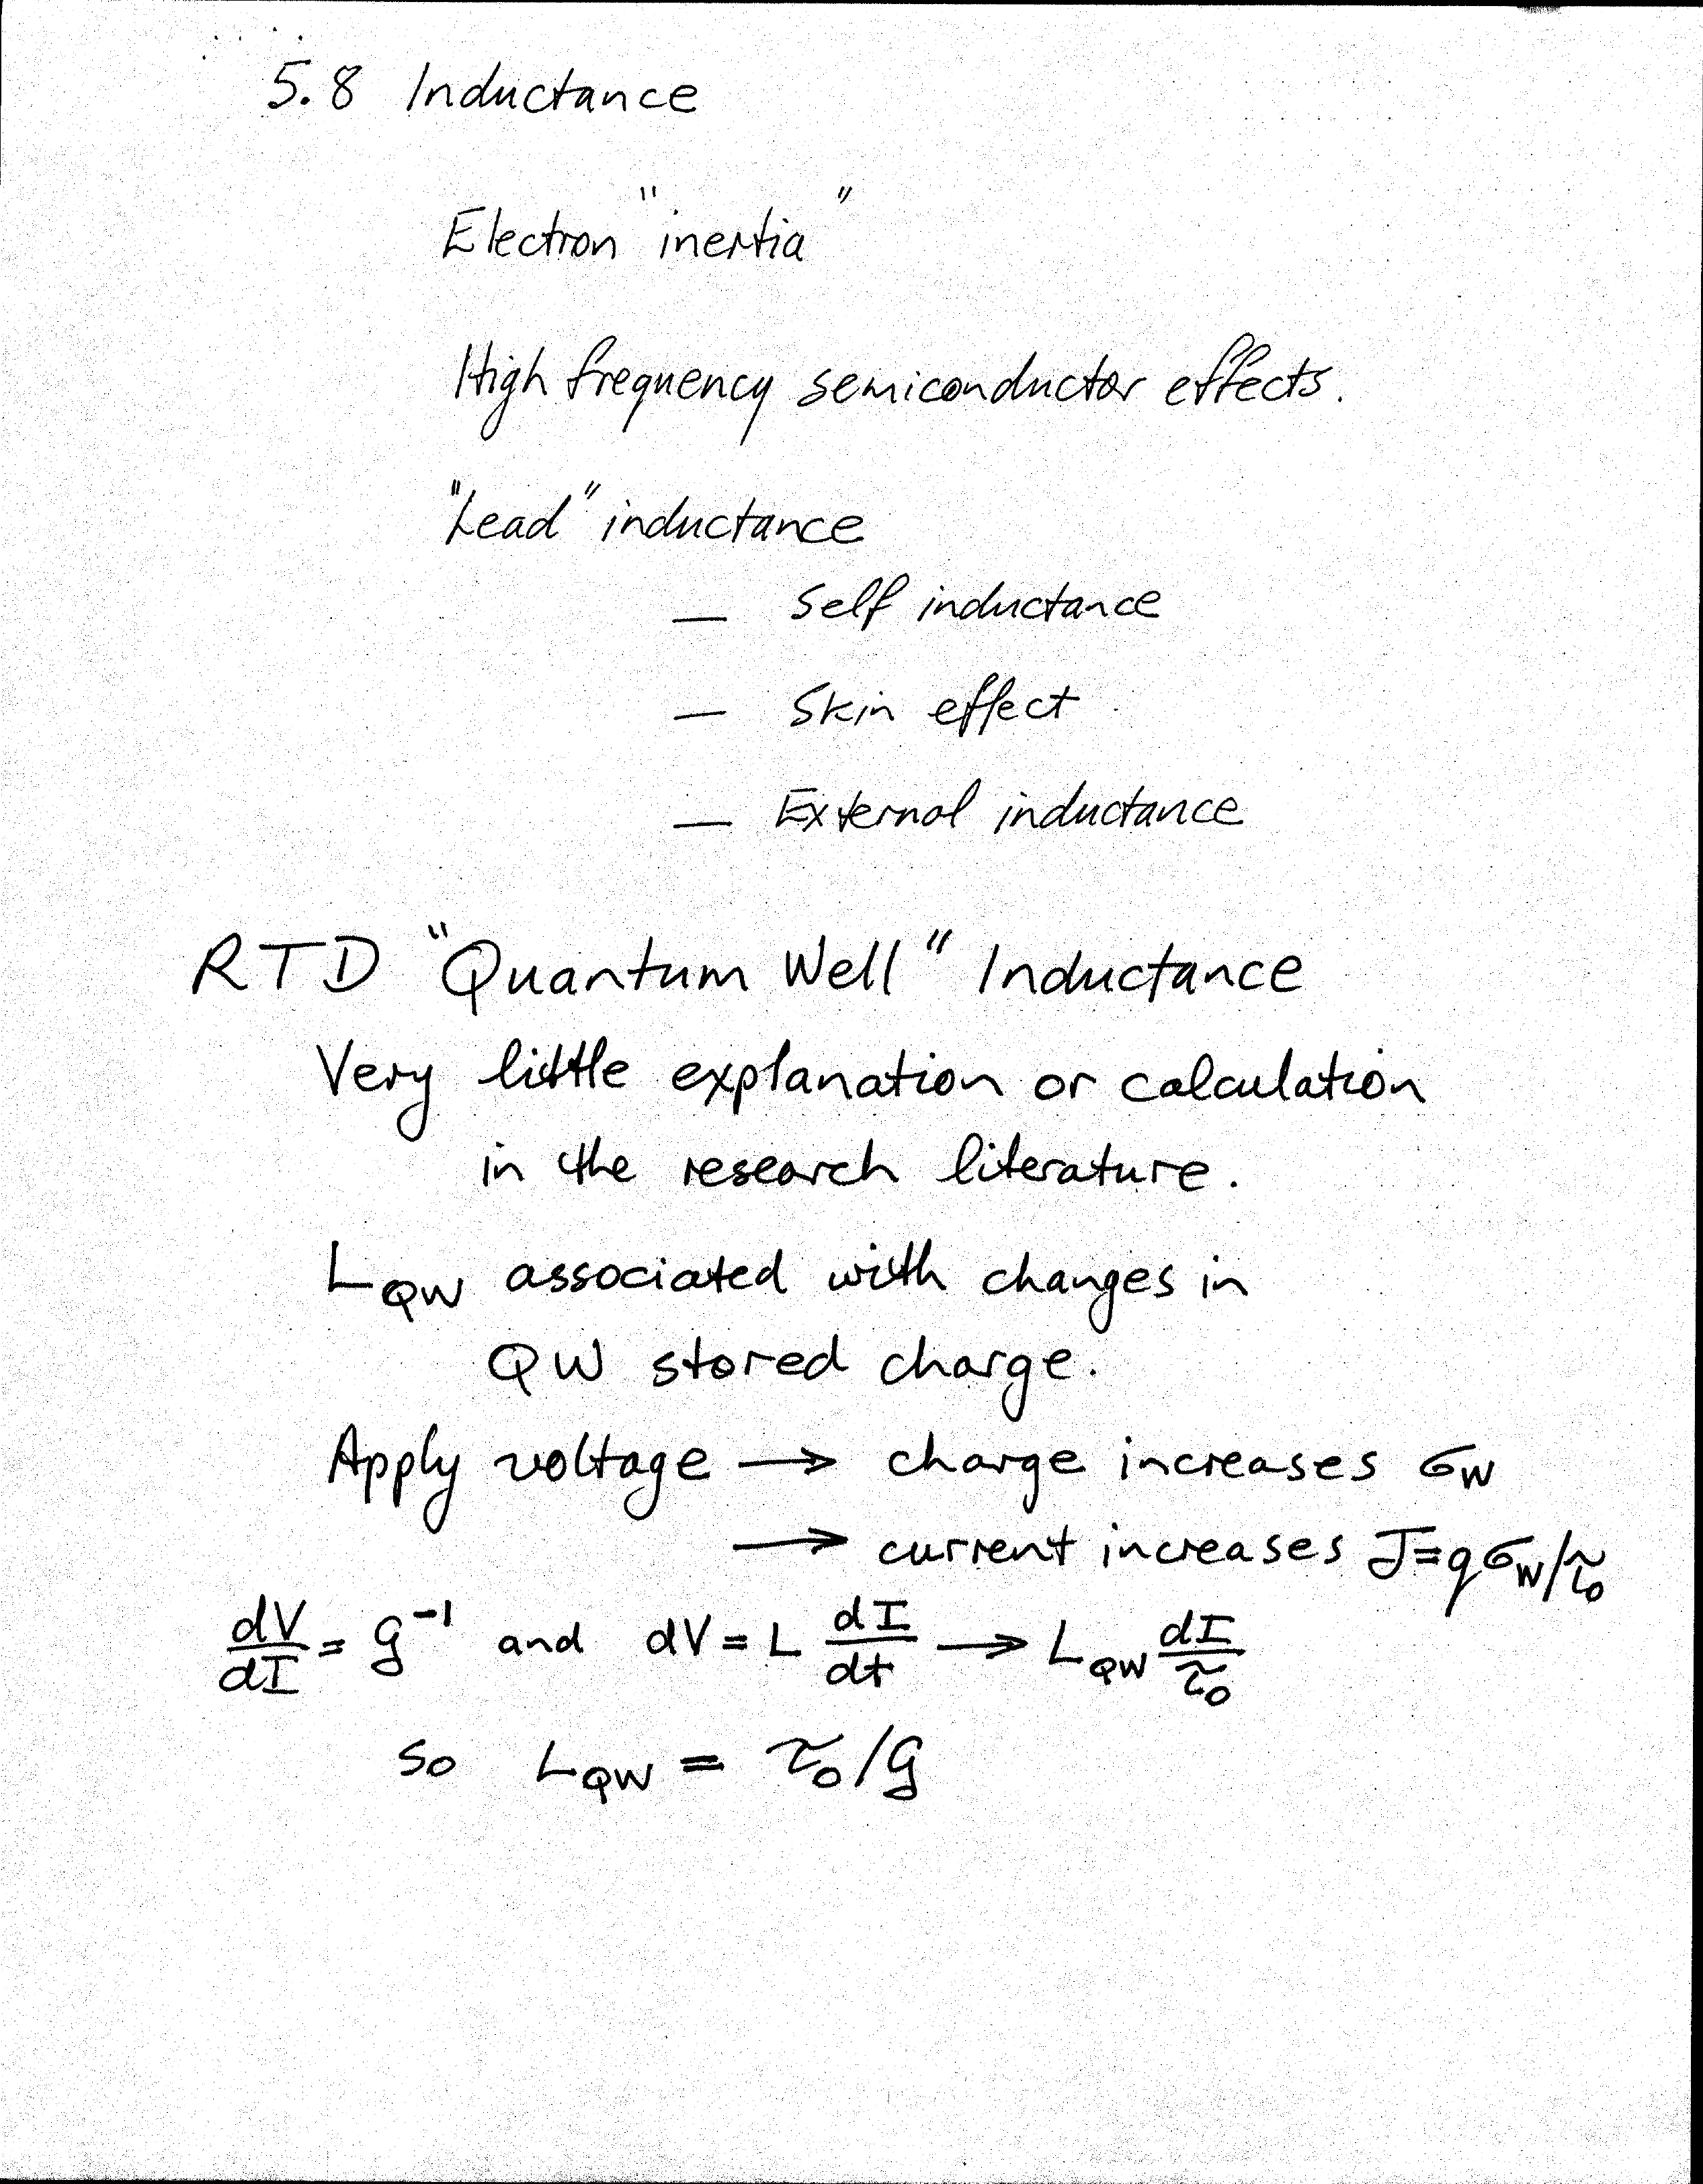 5.8 Inductance
Electron "inertia"
High frequency semiconductor effects.
"Lead" inductance
— Self inductance
— Skin effect
— External inductance
RTD "Quantum Well" Inductance
Very little explanation or calculation
in the research literature.
L_QW associated with changes in
QW stored charge.
Apply voltage → charge increases σ_W
→ current increases J = qσ_W/τ_0
dV/dI = g⁻¹ and dV = L dI/dt → L_QW dI/τ_0
so L_QW = τ_0/g